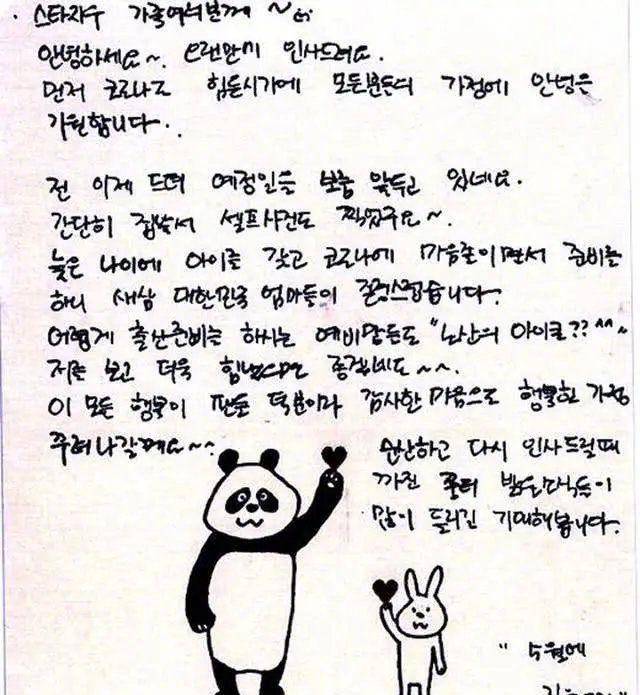 스타자수 가족여러분께 ~
안녕하세요~. 오랜만이 인사드려요.
먼저 코로나로 힘든시기에 모든분들의 가정에 안녕을
기원합니다.
전 이제 드뎌 예정일을 보름 앞두고 있네요.
간단히 집에서 셀프사진도 찍었구요~.
늦은 나이에 아이를 갖고 코로나에 마음졸이면서 준비를
하니 새삼 대한민국 엄마들이 존경스럽습니다.
어렵게 출산준비를 하시는 예비맘들도 "노산의 아이콘?? ^^~
저를 보고 더욱 힘냈으면 좋겠네요~~.
이 모든 행복이 팬들 덕분이라 감사한 마음으로 행복한 가정
꾸려나갈께요~~
순산하고 다시 인사드릴때
까진 밝은소식들이
많이 들리길 기대해봅니다.
" 5월에